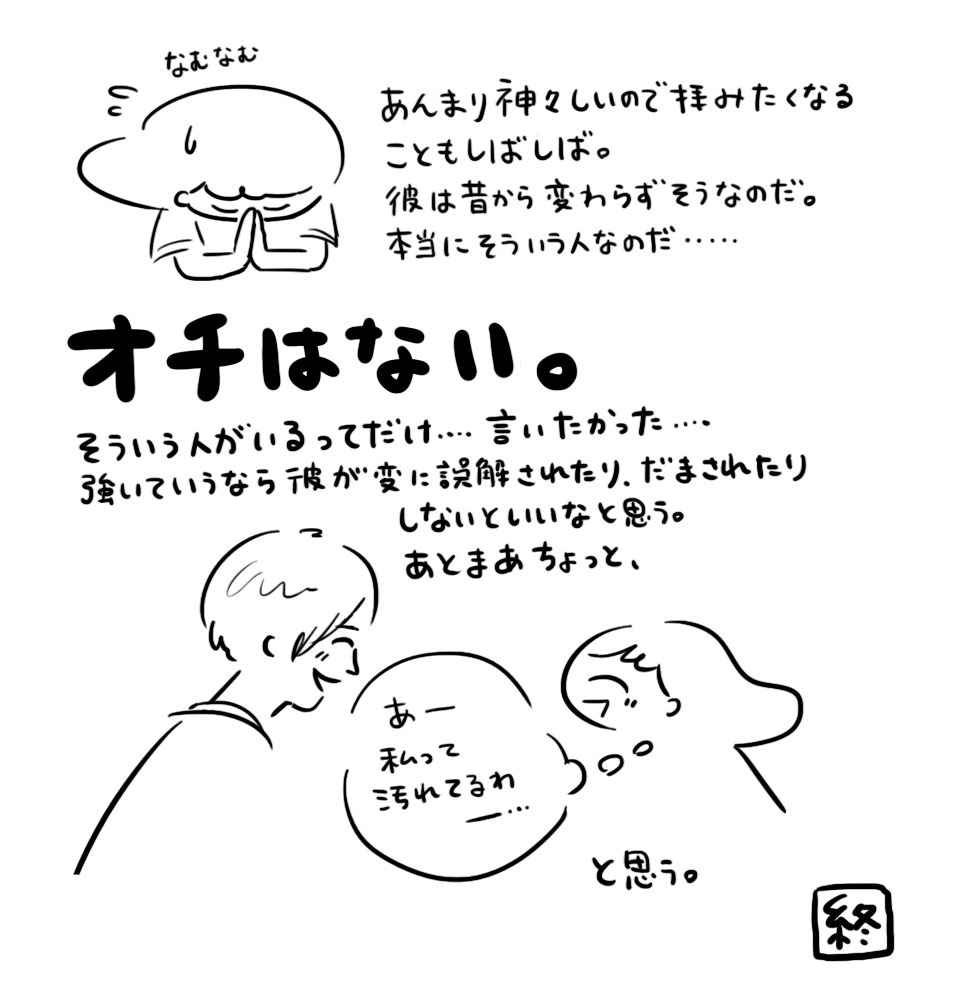 なむなむ
あんまり神々しいので拝みたくなる
こともしばしば。
彼は昔から変わらずそうなのだ。
本当にそういう人なのだ‥‥‥
オチはない。
そういう人がいるってだけ‥‥言いたかった‥‥
強いていうなら彼が変に誤解されたり、だまされたり
しないといいなと思う。
あとまあちょっと、
あー
私って
汚れてるわ
ー…
と思う。
終